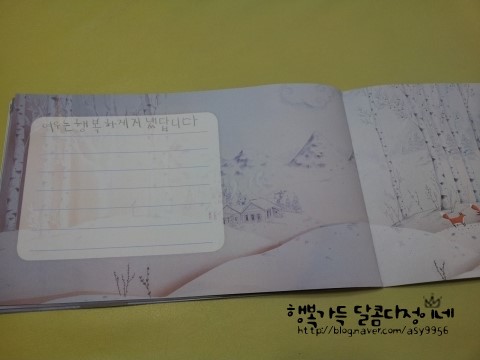 행복하게 지냈답니다
행복가득 달콤다정이네
http://blog.naver.com/asy9956